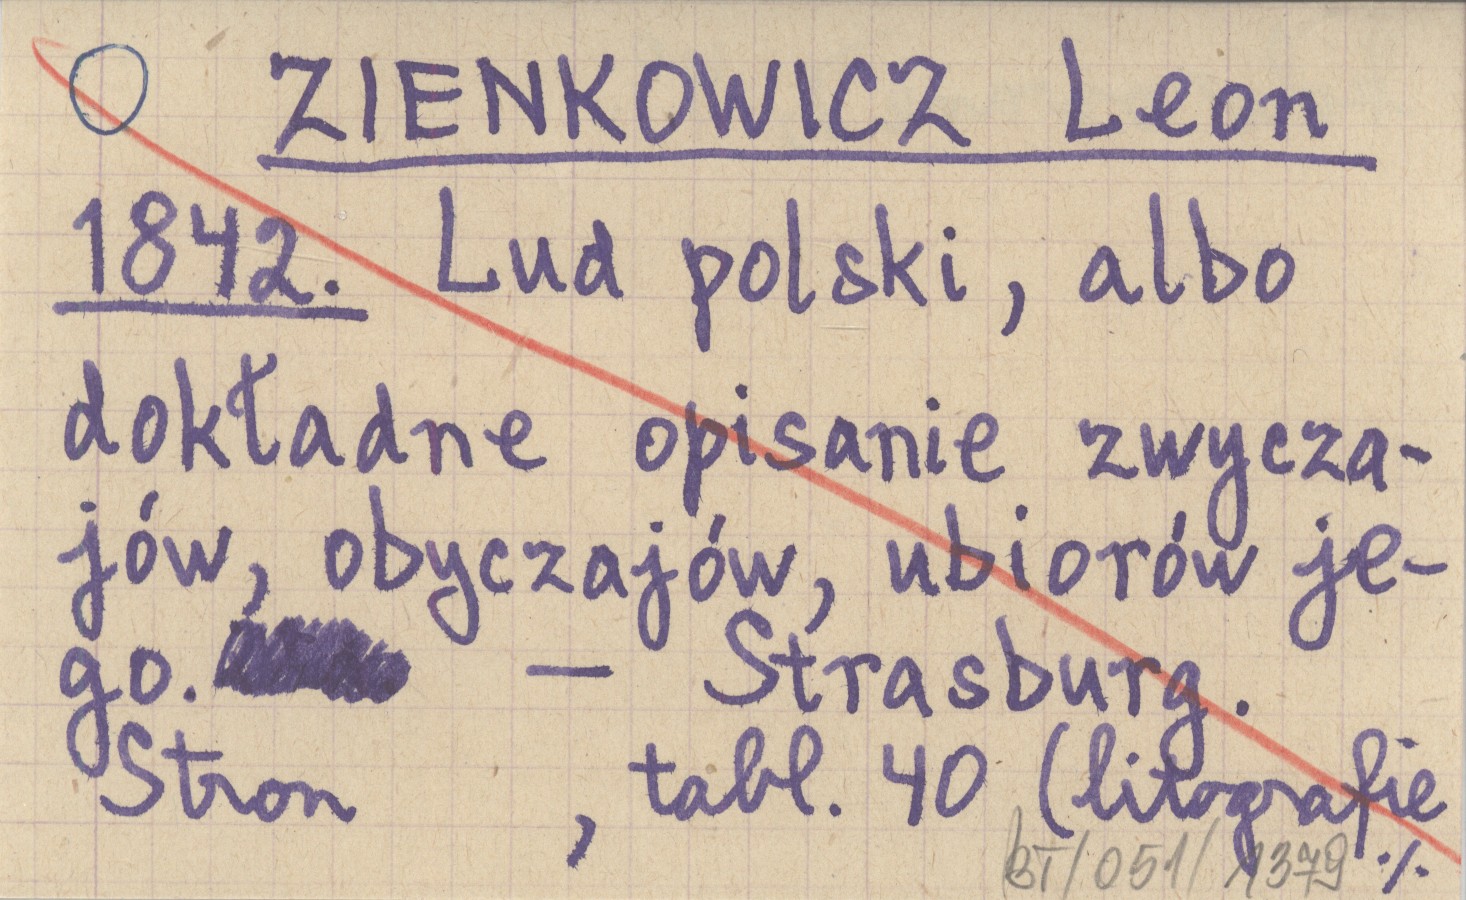 ZIENKOWICZ Leon
1842. Lud polski, albo
dokładne opisanie zwycza-
jów, obyczajów, ubiorów je-
go. — Strasburg.
Stron , tabl. 40 (litografie
BT/051/1379 ·/.